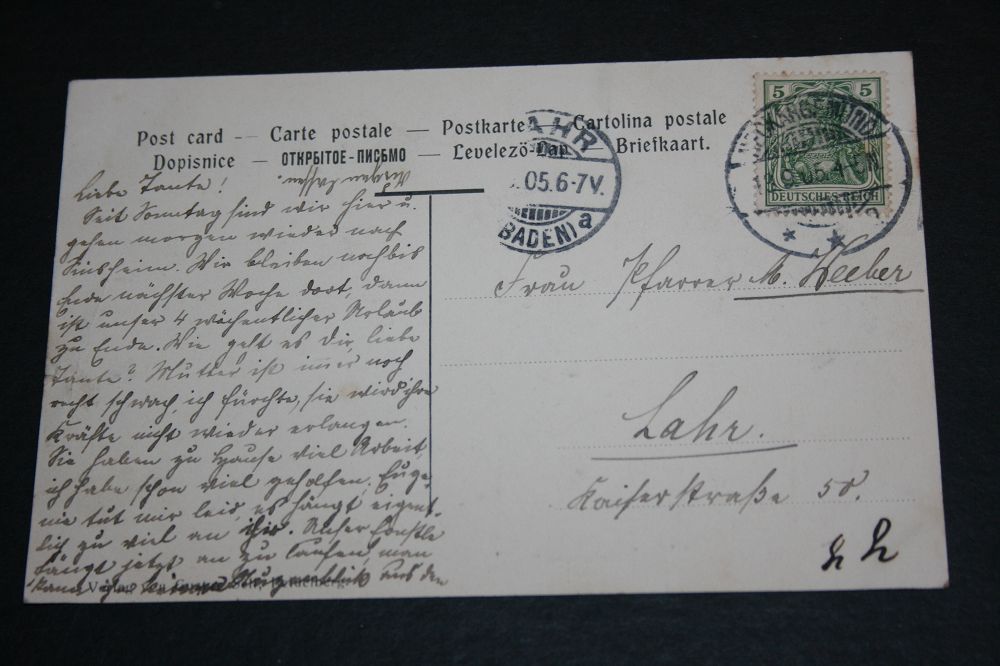 Post card — Carte postale — Postkarte — Cartolina postale
Dopisnice — ОТКРЫТОЕ-ПИСЬМО — Levelező-Lap — Briefkaart.
LAHR
.05.6-7V.
(BADEN) a
5 5
DEUTSCHES REICH
Liebe Tante!
Seit Sonntag sind wir hier u.
gehen morgen wieder nach
Sinsheim. Wir bleiben noch bis
Ende nächster Woche dort, dann
ist unser 4 wöchentlicher Urlaub
zu Ende. Wie geht es dir, liebe
Tante? Mutter ist immer noch
recht schwach, ich fürchte, sie wird ihre
Kräfte nicht wieder erlangen.
Sie haben zu Hause viel Arbeit,
ich habe schon viel geholfen. Euge-
nie tut mir leid, es hängt eigent-
lich zu viel an ihr. Unser
fängt jetzt an zu laufen, man
kann Augenblick aus den
Frau Pfarrer M. Heeber
Lahr.
Kaiserstraße 50.